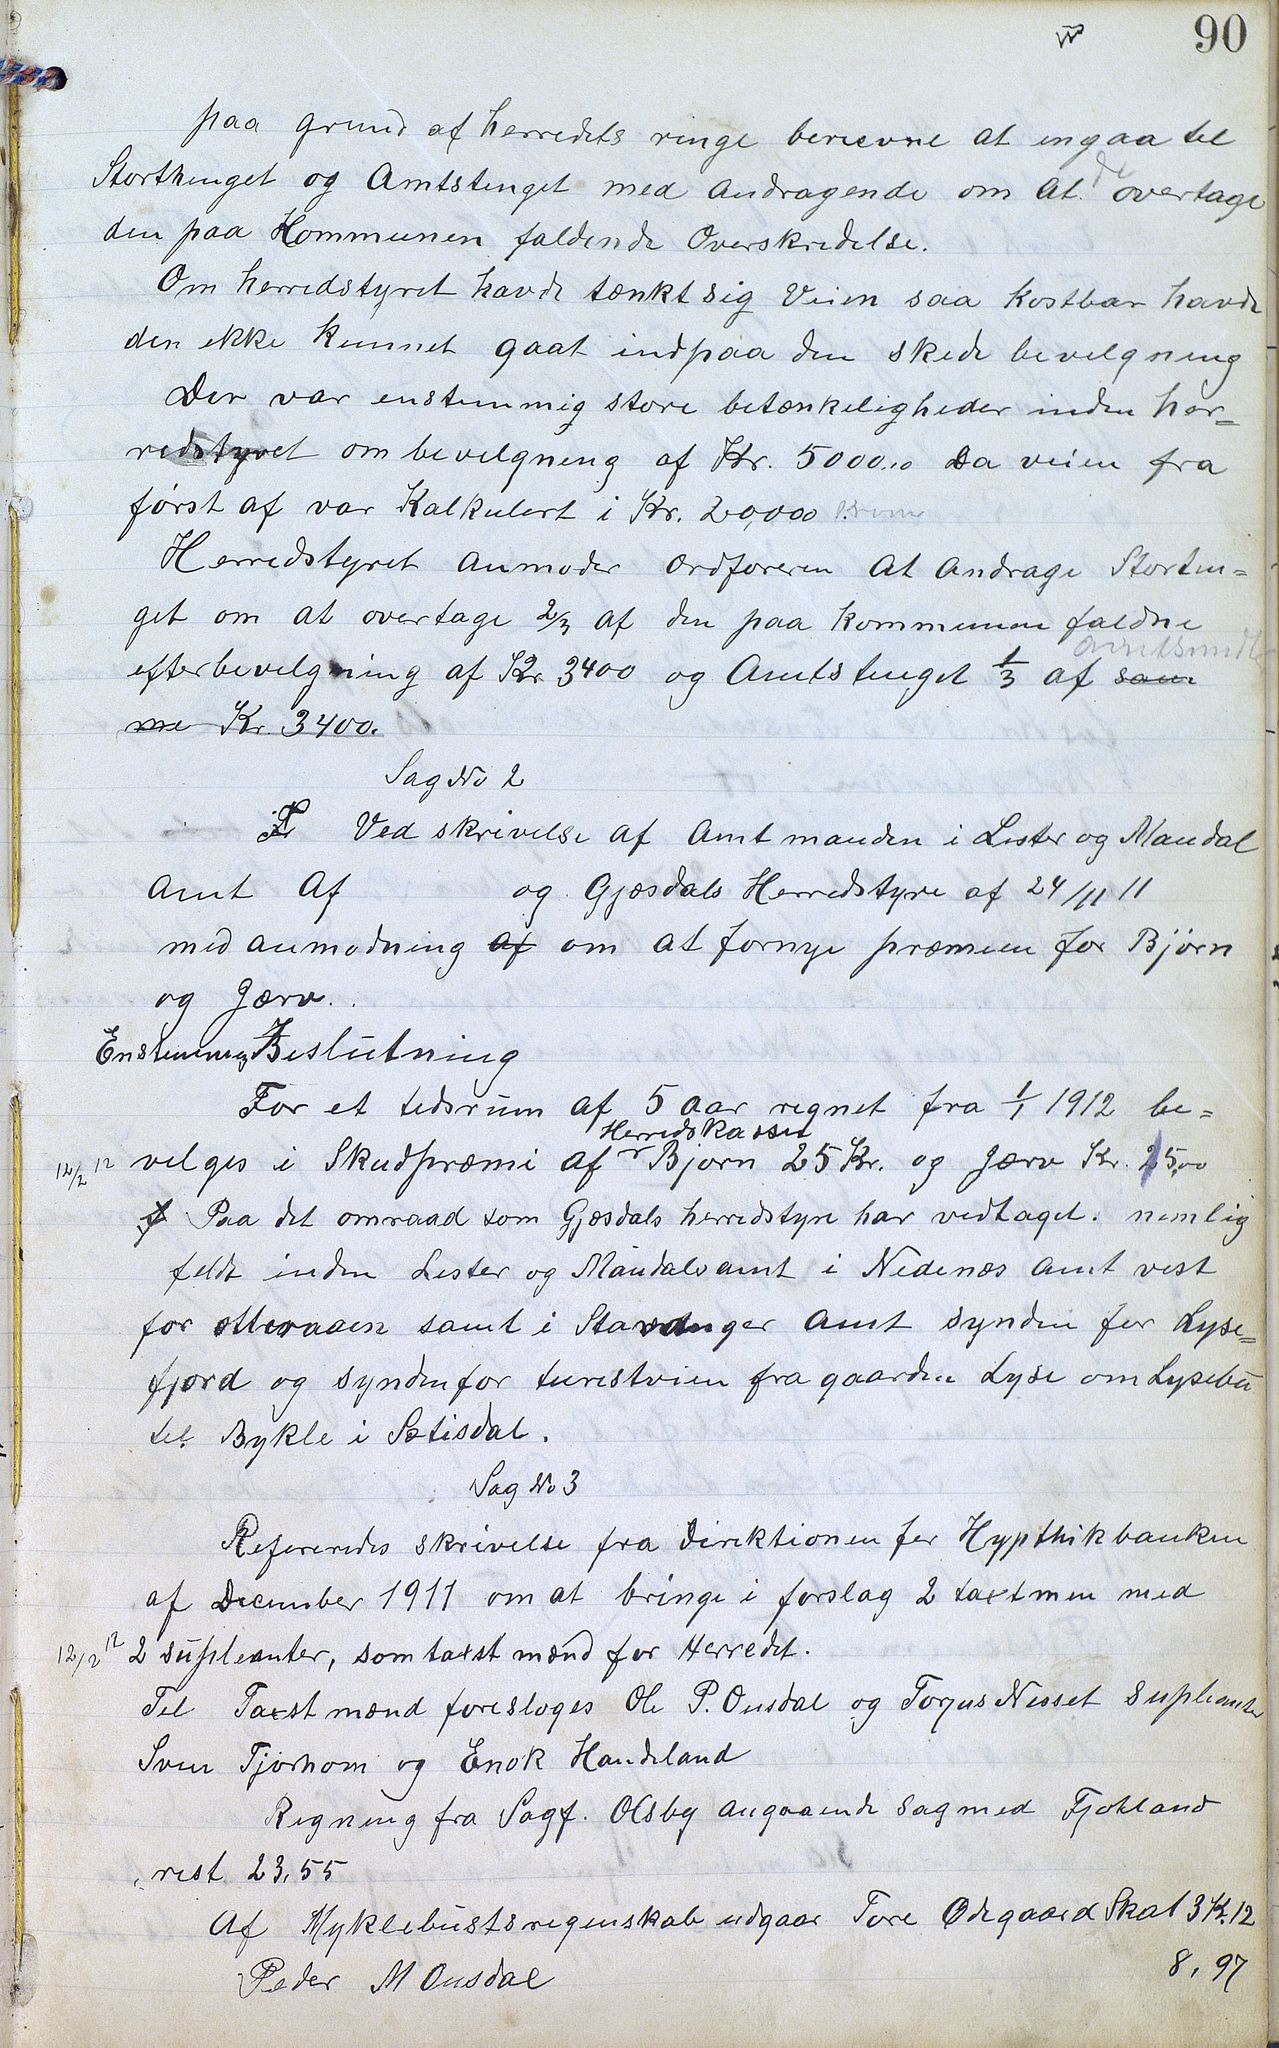 90
paa grund af herredets ringe bereevne at ingaa til
Storthinget og Amtstinget med Andragende om At de overtage
den paa Kommunen faldende Overskridelse.
Om herredstyret havde tænkt sig Veien saa Kostbar havde
den ikke kunnet gaat indpaa den skede bevilgning
Der var enstemmig store betænkeligheder inden her=
redstyret om bevilgning af Kr. 5000.00 Da veien fra
først af var Kalkulert i Kr. 20,000
Herredstyret anmoder Ordføreren At Andrage Stortin=
get om at overtage 2/3 af den paa kommunen faldne
efterbevilgning af Kr 3400 og Amtstinget 1/3 af sam
me Kr. 3400.
Sag No 2
Ved skrivelse af Amtmanden i Lister og Mandal
Amt Af og Gjæsdals Herredstyre af 24/11 11
med anmodning af om at fornye præmien for Bjørn
og Jærv.
Enstemmig Beslutning
For et tidsrum af 5 aar regnet fra 1/1 1912 be=
Herredskassen
12/2 12 velges i Skudpræmi af Bjørn 25 Kr. og Jærv Kr. 25,00
Paa det omraad som Gjæsdals herredstyre har vedtaget. nemlig
feldt inden Lister og Mandals amt i Nedenæs Amt vest
for otteraaen samt i Stavanger Amt synden for Lyse=
fjord og syndenfor turistveien fra gaarden Lyse om Lysebu
til Bykle i Sætisdal.
Sag No 3
Refereredes skrivelse fra Direktionen for Hypthikbanken
af December 1911 om at bringe i forslag 2 taxtmen med
12/2 12 2 supleanter, som taxst mænd for Herredet.
Til Taxst mænd foresloges Ole P. Ousdal og Torjus Nesset Supleanter
Sven Tjørhom og Enok Haudeland
Regning fra Sagf. Olsby angaaende sag med Fjotland
rest 23,55
Af Myklebustsregenskab udgaar Tore Ødegaard Skat 3 Kr. 12
Peder M Ousdal 8,97